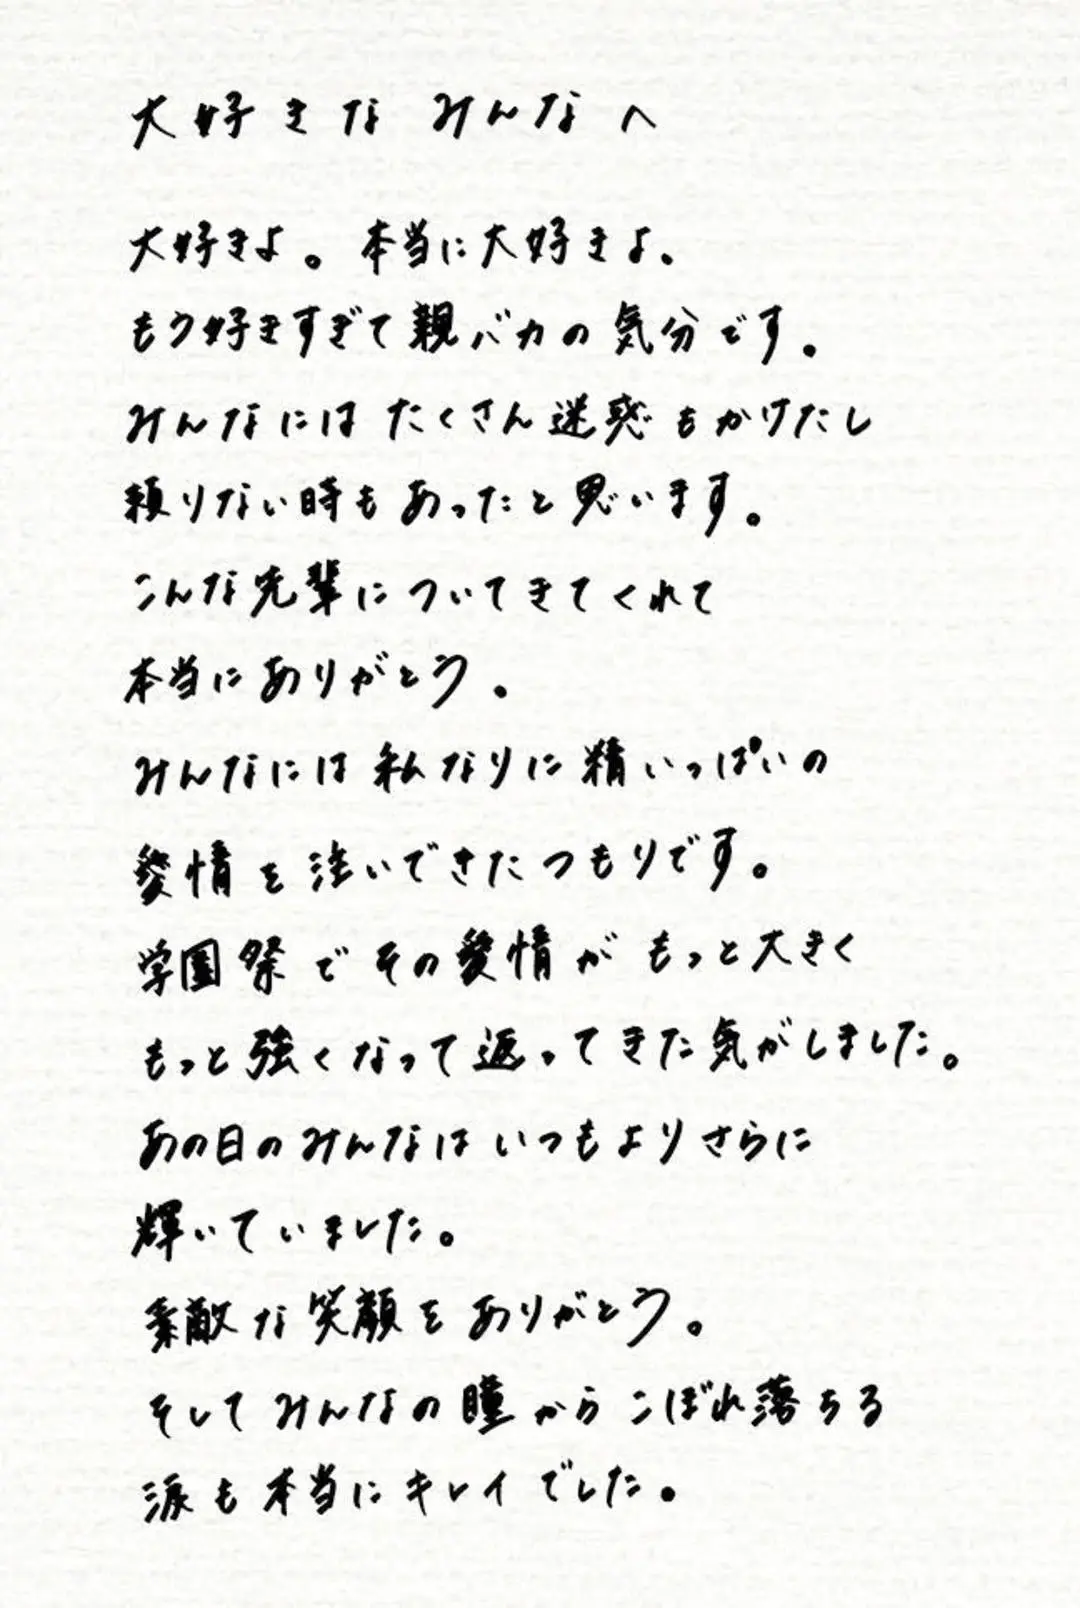 大好きなみんなへ
大好きよ。本当に大好きよ、
もう好きすぎて親バカの気分です。
みんなにはたくさん迷惑もかけたし
頼りない時もあったと思います。
こんな先輩についてきてくれて
本当にありがとう。
みんなには私なりに精いっぱいの
愛情を注いできたつもりです。
学園祭でその愛情がもっと大きく
もっと強くなって返ってきた気がしました。
あの日のみんなはいつもよりさらに
輝いていました。
素敵な笑顔をありがとう。
そしてみんなの瞳からこぼれ落ちる
涙も本当にキレイでした。